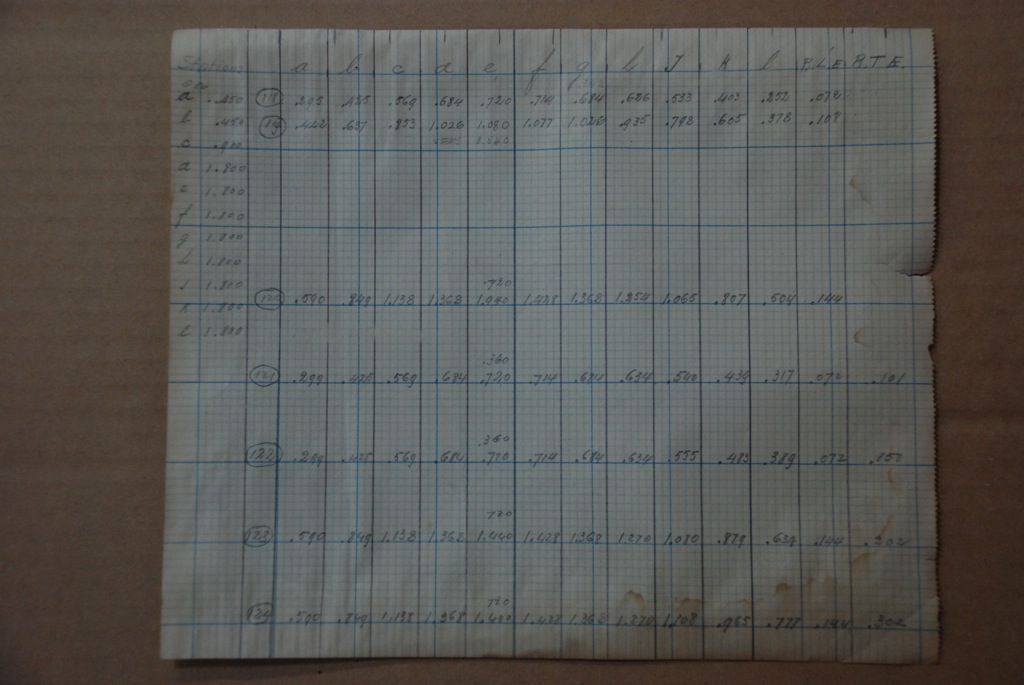 Stations a b c d e f g h J K l R.L.E R.T.E.
a .450 (118) .295 .425 .569 .684 .720 .714 .684 .626 .533 .403 .252 .072
b .450 (119) .442 .637 .853 1.026 1.080 1.077 1.026 .935 .798 .605 .378 .108
c .900
d 1.800
e 1.800
f 1.800
g 1.800
h 1.800
J 1.800 .720
K 1.800 (120) .590 .849 1.138 1.368 1.440 1.428 1.368 1.254 1.065 .807 .504 .144
l 1.800
.360
(121) .299 .425 .569 .684 .720 .714 .684 .634 .540 .439 .317 .072 .101
.360
(122) .299 .425 .569 .684 .720 .714 .684 .634 .555 .483 .389 .072 .151
.720
(123) .590 .849 1.138 1.368 1.440 1.428 1.368 1.270 1.080 .879 .634 .144 .302
.720
(124) .590 .849 1.138 1.368 1.440 1.428 1.368 1.270 1.108 .965 .777 .144 .302